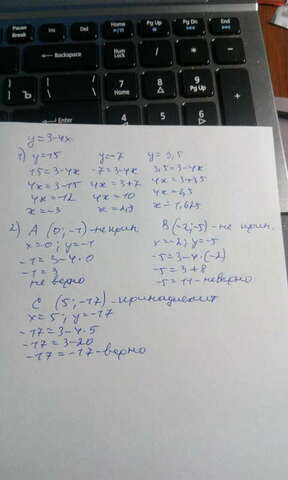 Pause Break
Ins
Del
Home
Pg Up
Pg Dn
End
Backspace
Num Lock
/
*
-
7 Home
8
9 Pg Up
Enter
4
5
6
y=3-4x
1) y=15 y=-7 y=3,5
15=3-4x -7=3-4x 3,5=3-4x
4x=3-15 4x=3+7 4x=3+3,5
4x=-12 4x=10 4x=6,5
x=-3 x=2,5 x=1,625
2) A (0;-1) не прин. B (-2;-5) - не прин.
x=0; y=-1 x=-2; y=-5
-1=3-4·0 -5=3-4·(-2)
-1=3 -5=3+8
не верно -5=11-неверно
C (5;-17) - принадлежит
x=5; y=-17
-17=3-4·5
-17=3-20
-17=-17-верно